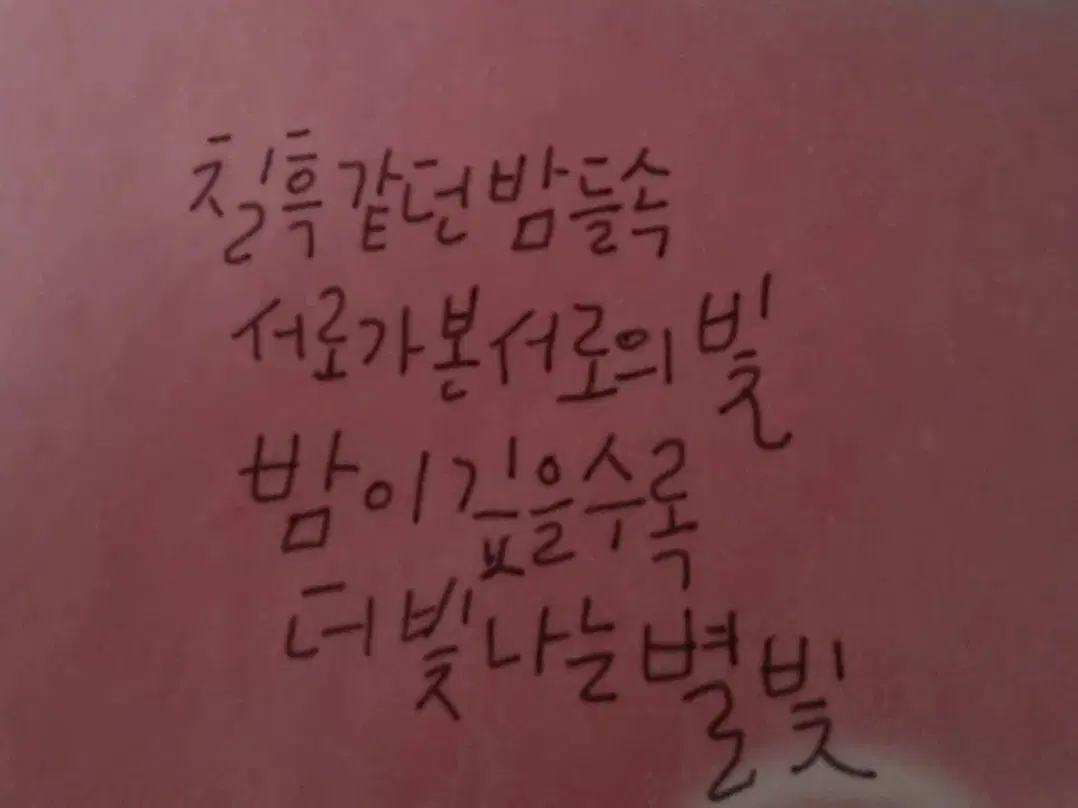 칠흑같던 밤들 속
서로가 본 서로의 빛
밤이 깊을수록
더 빛나는 별빛